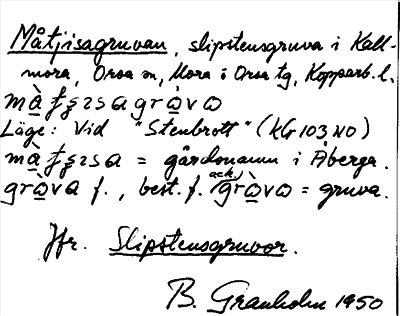 Måtjisagruvan, slipstensgruva i Kall-
mora, Orsa sn, Mora o Orsa tg, Kopparb. l.
Läge: Vid "Stenbrott" (KG 103 NO)
= gårdsnamn i Åberga.
f., best. f. ack. = gruva.
Jfr. Slipstensgruvor.
B. Granholm 1950